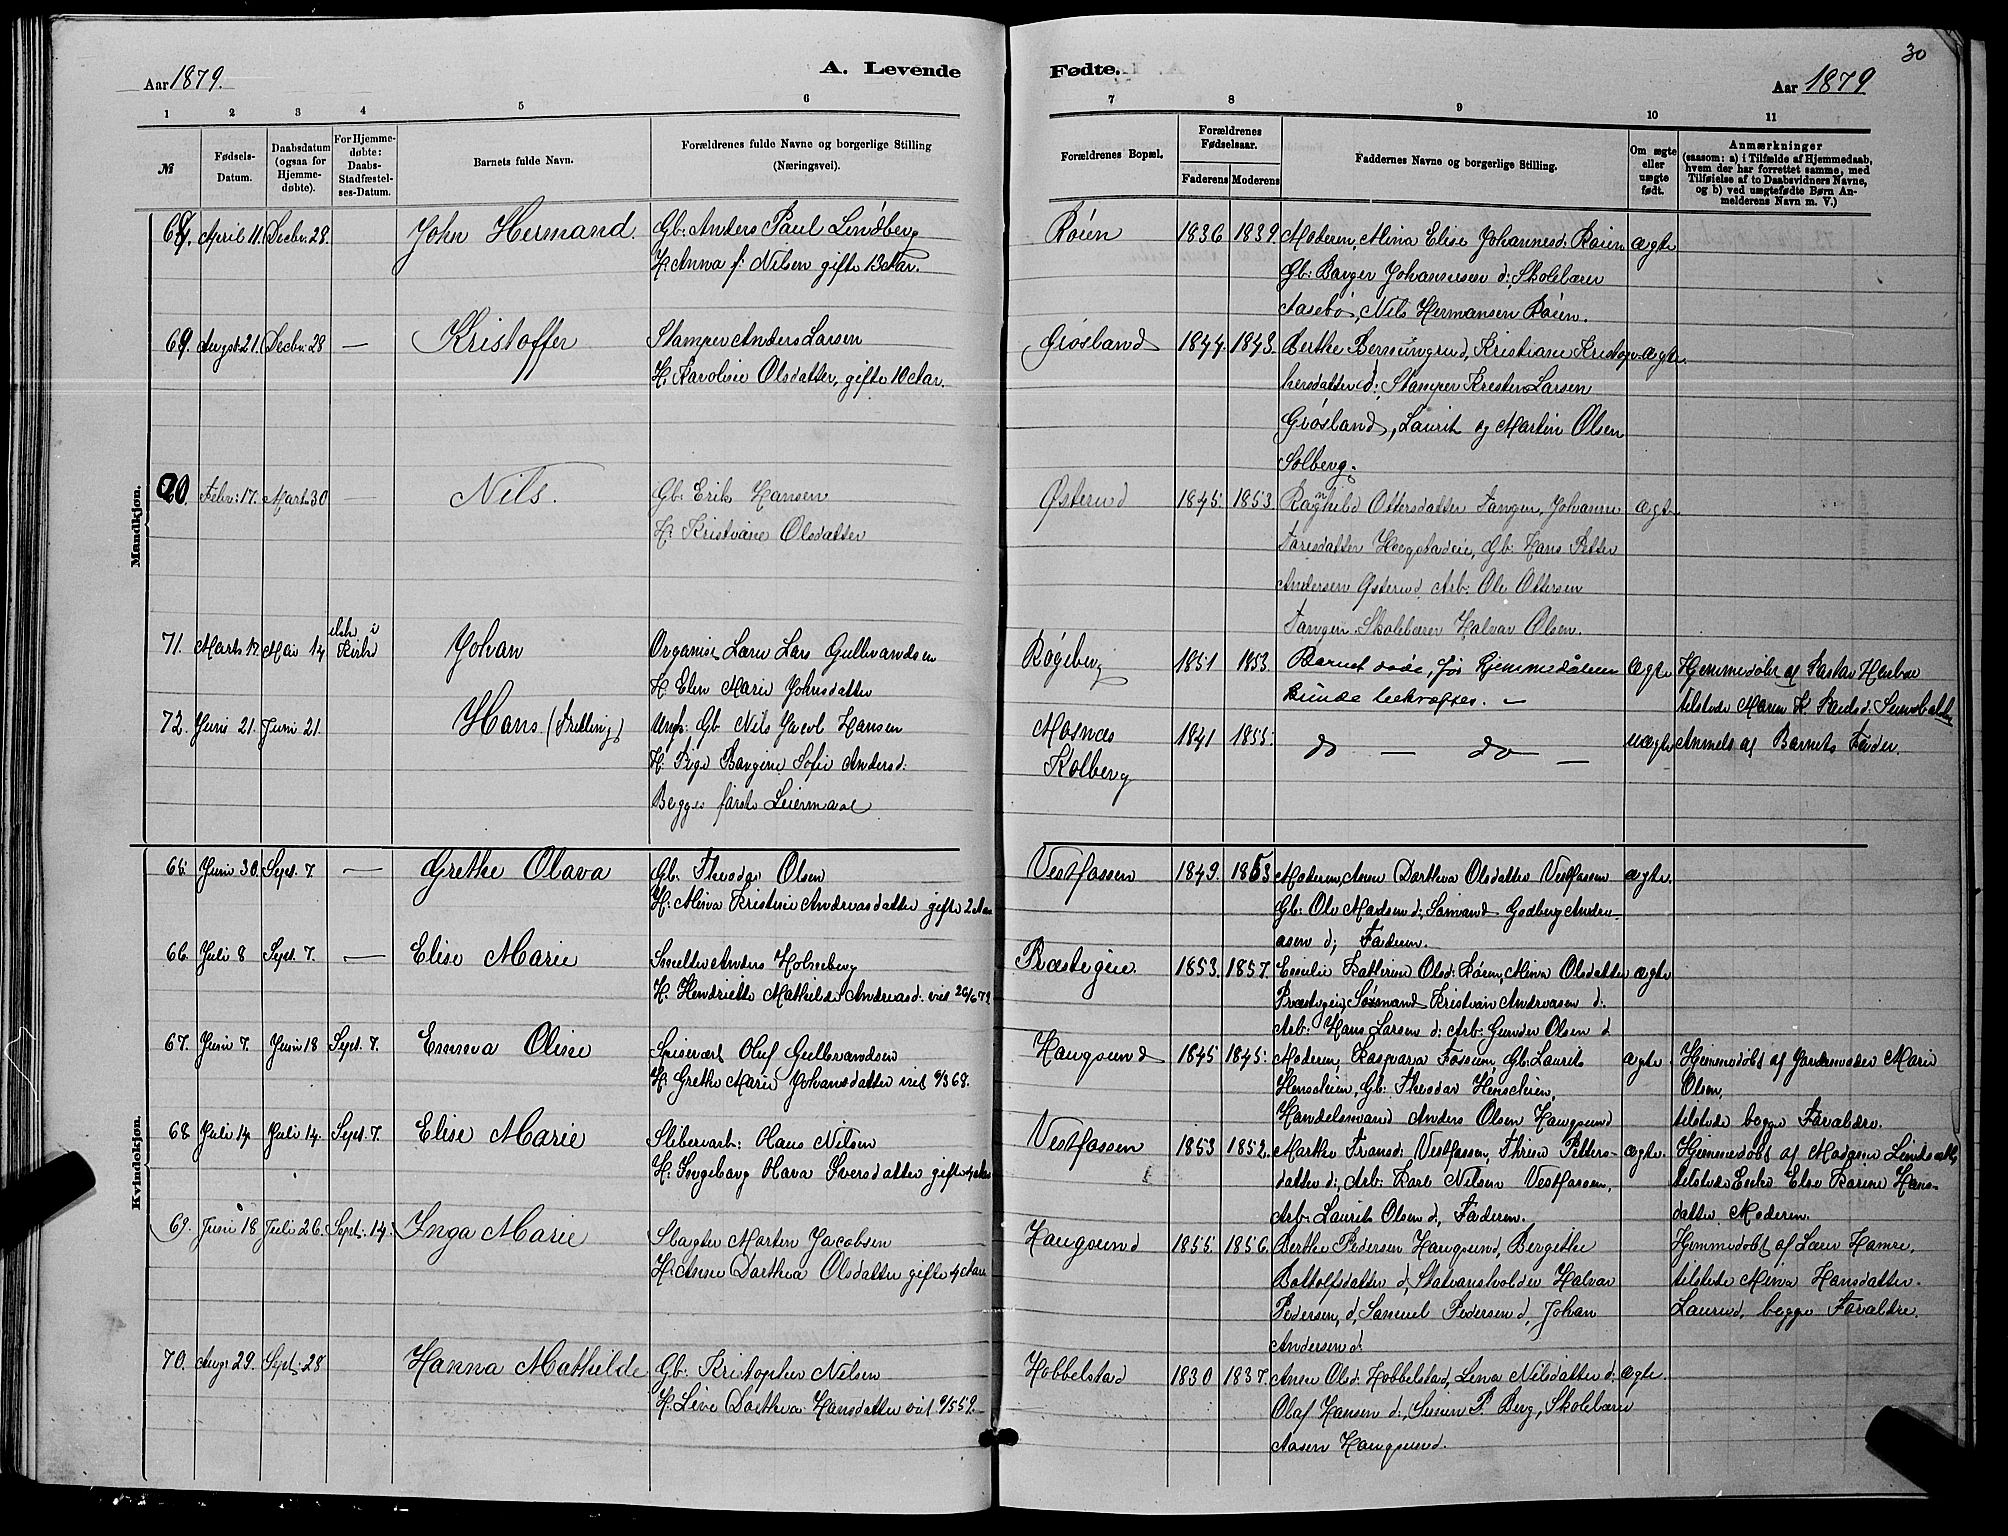 30
Aar 1879. A. Levende
Fødte. Aar 1879
1 2 3 4 5 6
7 8 9 10 11
№
Fødsels-
Datum.
Daabsdatum
(ogsaa for
Hjemme-
døbte).
For Hjemme-
døbte:
Daabs-
Stadfæstel-
ses-Datum.
Barnets fulde Navn.
Forældrenes fulde Navne og borgerlige Stilling
(Næringsvei).
Forældrenes Bopæl.
Forældrenes
Fødselsaar.
Faderens Moderens
Faddernes Navne og borgerlige Stilling.
Om ægte
eller
uægte
født.
Anmærkninger
(saasom: a) i Tilfælde af Hjemmedaab,
hvem der har forrettet samme, med
Tilføielse af to Daabsvidners Navne,
og b) ved uægtefødte Børn An-
melderens Navn m. V.)
Mandkjøn.
68. April 11. Decbr. 28. John Hermand. Gb: Anders Paul Lindberg
H. Anna f: Nilsen gifte 13 Aar.
Røien 1836 1839. Moderen, Mina Elise Johannesd: Røien ægte
Gb: Johannesen d:, Skolelærer
Aasebø, Nils Hermansen Røien.
69. Augst. 21. Decbr. 28 — Kristoffer Stamper Anders Larsen
H. Karoline Olsdatter, gifte 10 Aar.
Grøsland 1844 1843. Berthe Kristiane Kristop- ægte.
hersdatter d:, Stamper Kresten Larsen
Grøsland, Laurits og Martin Olsen
Solberg.
70. Febr: 17. Marts 30 — Nils. Gb: Erik Hansen
H: Kristiane Olsdatter
Østerud 1845. 1853. Ragnhild Ottersdatter Tangen, Johanne ægte
Gb: Hans Petter
Andersen Østerud, Arb: Ole Ottersen
Tangen. Skolelærer Halvor Olsen.
71. Marts 17. Mai 14 i Kirke Johan Organist Lærer Lars Gulbrandsen
H. Elen Marie Johnsdatter
Røgeberg 1851 1853. Barnet døde, før Hjemmedåben ægte Hjemmedøbt af
kunde bekræftes. — tilstede Maren K.
72. Juni 21. Juni 21. Hans (Tvilling) Ungk: Gb Nils Jacob Hansen
H. Pige Sofie Andersd:
Begges første Leiermaal
Mosnæs
Kolberg
1841 1855. do — do — uægte Anmeldt af Barnets Fader.
Kvindekjøn.
65. Juni 30. Sept. 7. — Grethe Olava Gb. Theodor Olsen
H: Mina Kristine Andreasdatter gifte 2 Aar
Vestfossen 1849. 1853 Moderen, Anne Dorthea Olsdatter Vestfossen ægte.
Gb: Ole Madsen d:, Sømand Godberg Andre-
asen d; Faderen.
66. Juli 8 Sept. 7. — Elise Marie Smelter Anders Holmeberg
H. Hendriette Mathilde Andreasd: viet 26/6 79.
Præstegeie. 1853. 1857. Emilie Kathrine Olsd: Røren, Mina Olsdatter ægte
Præstegeie, Sømand Kristian Andreasen d:
Arb: Hans Larsen d: Arb: Gunder Olsen d
67. Juni 7. Juni 18 Sept. 7. Emma Oline Spisevært Oluf Gulbrandsen
H. Grethe Marie Johansdatter viet 9/3 68.
Haugsund 1845 1845. Moderen, Fossum, Gb: Laurits ægte.
Henscheien, Gb: Theodor Henscheien,
Handelsmand Anders Olsen Haugsund
Hjemmedøbt af Jordemoder Marie
Olsen,
tilstede begge Forældre.
68 Juli 14 Juli 14. Sept. 7. Elise Marie Sliberarb: Hans Nilsen
H: Ingeborg Olava Iversdatter gifte 4 Aar
Vestfossen 1853 1852. Marthe Fransd: Vestfossen, Thrine Petters- ægte.
datter d:, Arb: Karl Nilsen Vestfossen,
Arb: Laurits Olsen d., Faderen.
Hjemmedøbt af Madam Lindbæk,
tilstede Enke Else Karine Hans-
datter, Moderen.
69. Juni 18 Juli 26. Sept. 14. Inga Marie Slagter Morten Jacobsen
H: Anne Dorthea Olsdatter gifte 4 Aar
Haugsund 1855. 1856. Berthe Pedersen Haugsund, Bergithe
Bottolfsdatter d, Halvor
Pedersen, d, Samuel Pedersen d, Johan
Andersen d.
Hjemmedøbt af Lærer Hamre,
tilstede Mina Hansdatter
begge Forældre.
70. Aug: 29. Sept: 28 Hanna Mathilde Gb: Kristopher Nilsen
H. Live Dorthea Hansdatter viet 9/5 59.
Hobbelstad 1830 1837. Anne Olsd: Hobbelstad, Lena Nilsdatter d: ægte.
Olaf Hansen d:, P. Berg, Skolelærer
Aasen Haugsund.